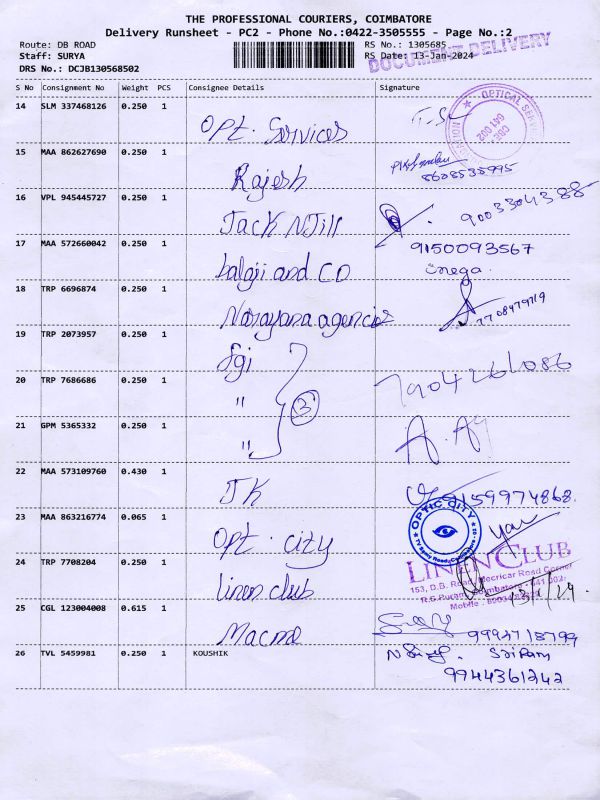 THE PROFESSIONAL COURIERS, COIMBATORE
Delivery Runsheet - PC2 - Phone No.:0422-3505555 - Page No.:2
Route: DB ROAD RS No.: 1305685
Staff: SURYA RS Date: 13-Jan-2024
DOCUMENT DELIVERY
DRS No.: DCJB130568502
S No Consignment No Weight PCS Consignee Details Signature
14 SLM 337468126 0.250 1 OPt. Services
OPTICAL
CBE 641 002
15 MAA 862627690 0.250 1 Rajesh
8608535995
16 VPL 945445727 0.250 1 Jack N Jill 9003304388
17 MAA 572660042 0.250 1 Lalgji and CO 9150093567
18 TRP 6696874 0.250 1 Narayana agencies 7708479719
19 TRP 2073957 0.250 1 Sgi
20 TRP 7686686 0.250 1 " 3 7904261086
21 GPM 5365332 0.250 1 "
22 MAA 573109760 0.430 1 JK 9159974868
23 MAA 863216774 0.065 1 Opt. city
OPTIC CITY
24 TRP 7708204 0.250 1 Linen club
LINEN CLUB
153, D.B. Road, Mecricar Road Corner
R.S.Puram, Coimbatore - 641 002.
Mobile :
13/1/24
25 CGL 123004008 0.615 1 Macme
26 TVL 5459981 0.250 1 KOUSHIK Sriram
9944361242